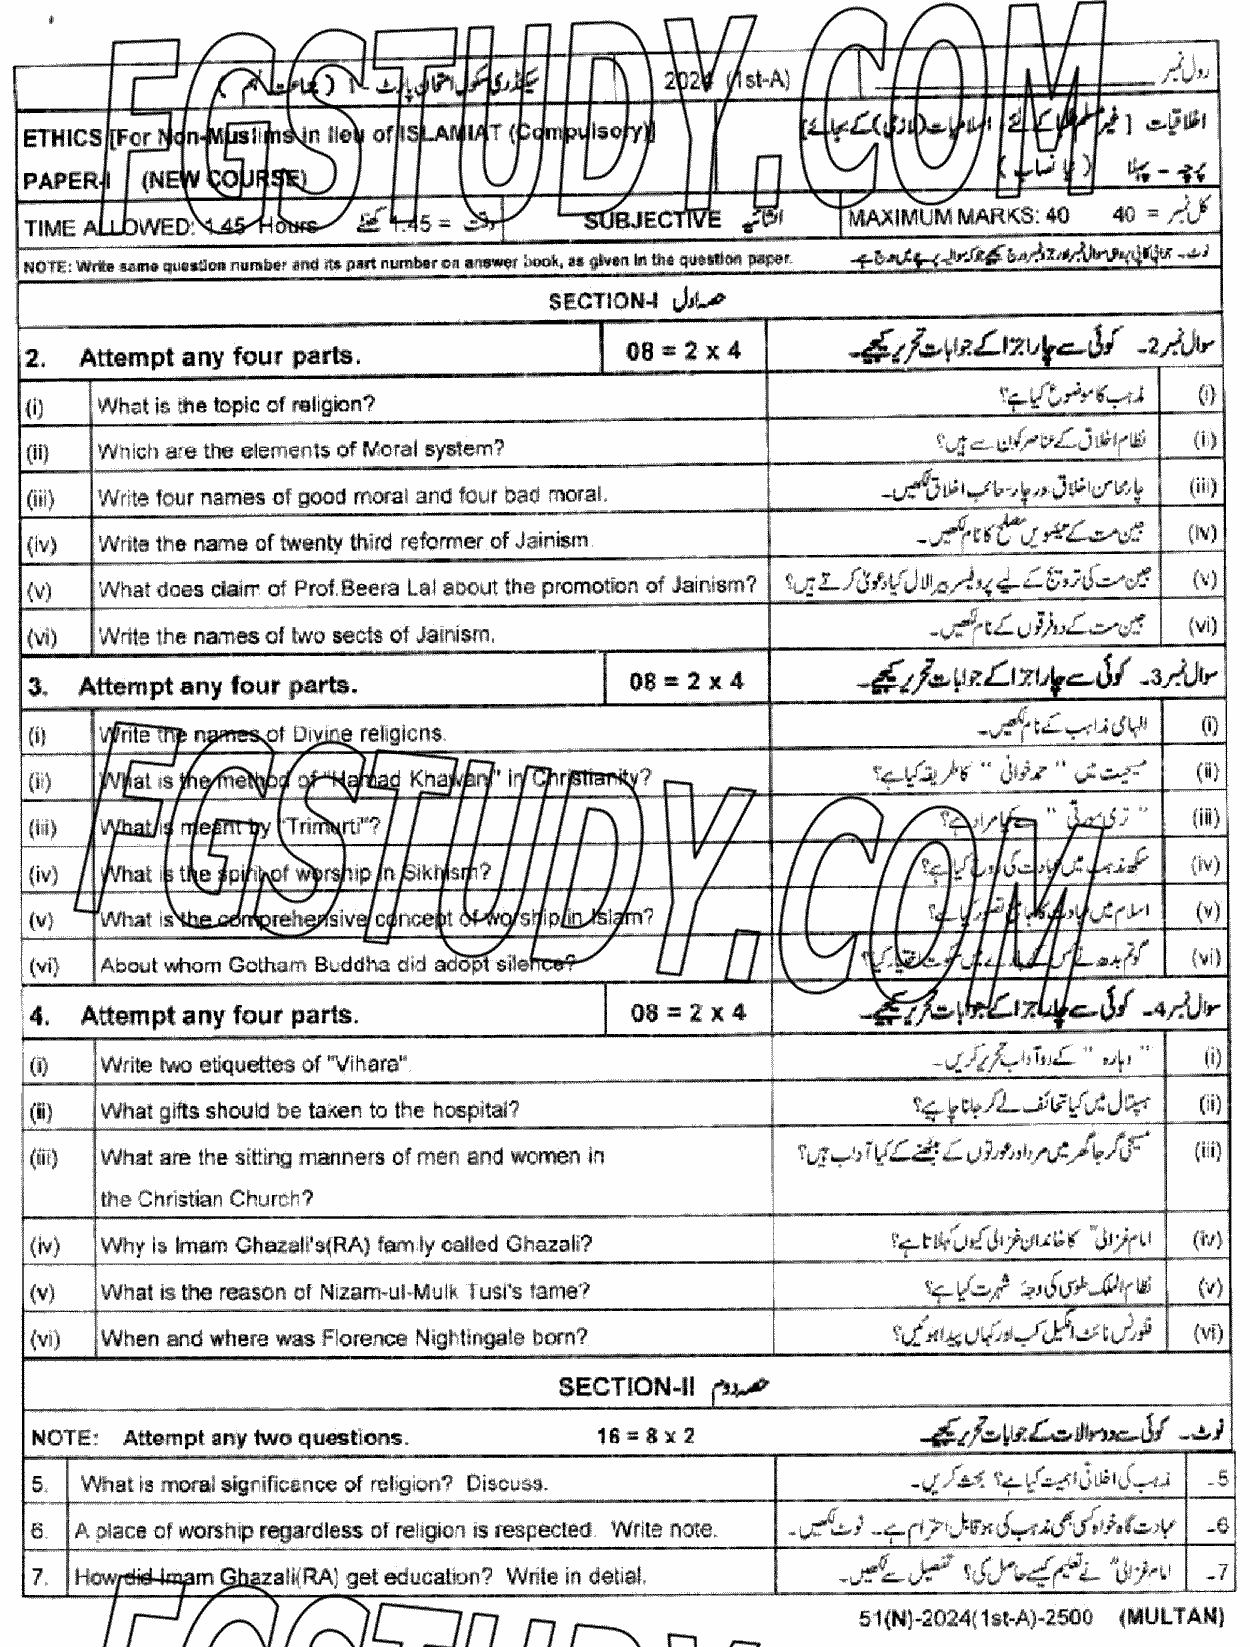 FGSTUDY.COM
رول نمبر 2024 (1st-A) سیکنڈری سکول امتحان پارٹ - I ( جماعت نہم )
ETHICS [For Non-Muslims in lieu of ISLAMIAT (Compulsory)] اخلاقیات [ غیر مسلم کے لئے، اسلامیات (لازمی) کے بجائے]
PAPER-I (NEW COURSE) پرچہ - پہلا ( نیا نصاب )
TIME ALLOWED: 1.45 Hours وقت = 1.45 گھنٹے SUBJECTIVE انشائیہ MAXIMUM MARKS: 40 کل نمبر = 40
NOTE: Write same question number and its part number on answer book, as given in the question paper.
SECTION-I حصہ اول
2. Attempt any four parts. 08 = 2 x 4 سوال نمبر 2۔ کوئی سے چار اجزا کے جوابات تحریر کیجیے۔
(i) What is the topic of religion? مذہب کا موضوع کیا ہے؟ (i)
(ii) Which are the elements of Moral system? نظام اخلاق کے عناصر کون سے ہیں؟ (ii)
(iii) Write four names of good moral and four bad moral. چار محاسن اخلاق اور چار معائب اخلاق لکھیں۔ (iii)
(iv) Write the name of twenty third reformer of Jainism. جین مت کے تیئسویں مصلح کا نام لکھیں۔ (iv)
(v) What does claim of Prof.Beera Lal about the promotion of Jainism? جین مت کی ترویج کے لیے پروفیسر بیرا لال کیا دعویٰ کرتے ہیں؟ (v)
(vi) Write the names of two sects of Jainism. جین مت کے دو فرقوں کے نام لکھیں۔ (vi)
3. Attempt any four parts. 08 = 2 x 4 سوال نمبر 3۔ کوئی سے چار اجزا کے جوابات تحریر کیجیے۔
(i) Write the names of Divine religions. الہامی مذاہب کے نام لکھیں۔ (i)
(ii) What is the method of "Hamad Khawani" in Christianity? مسیحیت میں " حمد خوانی " کا طریقہ کیا ہے؟ (ii)
(iii) What is meant by "Trimurti"? " تری مورتی " سے کیا مراد ہے؟ (iii)
(iv) What is the spirit of worship in Sikhism? سکھ مذہب میں عبادت کی روح کیا ہے؟ (iv)
(v) What is the comprehensive concept of worship in Islam? اسلام میں عبادت کا جامع تصور کیا ہے؟ (v)
(vi) About whom Gotham Buddha did adopt silence? گوتم بدھ نے کس کے بارے میں سکوت اختیار کیا؟ (vi)
FGSTUDY.COM
4. Attempt any four parts. 08 = 2 x 4 سوال نمبر 4۔ کوئی سے چار اجزا کے جوابات تحریر کیجیے۔
(i) Write two etiquettes of "Vihara". " وہارہ " کے دو آداب تحریر کریں۔ (i)
(ii) What gifts should be taken to the hospital? ہسپتال میں کیا تحائف لے کر جانا چاہیے؟ (ii)
(iii) What are the sitting manners of men and women in مسیحی گرجا گھر میں مرد اور عورتوں کے بیٹھنے کے کیا آداب ہیں؟ (iii)
the Christian Church?
(iv) Why is Imam Ghazali's(RA) family called Ghazali? امام غزالیؒ کا خاندان غزالی کیوں کہلاتا ہے؟ (iv)
(v) What is the reason of Nizam-ul-Mulk Tusi's fame? نظام الملک طوسی کی وجہ شہرت کیا ہے؟ (v)
(vi) When and where was Florence Nightingale born? فلورنس نائٹ انگیل کب اور کہاں پیدا ہوئیں؟ (vi)
SECTION-II حصہ دوم
NOTE: Attempt any two questions. 16 = 8 x 2 نوٹ۔ کوئی سے دو سوالات کے جوابات تحریر کیجیے۔
5. What is moral significance of religion? Discuss. مذہب کی اخلاقی اہمیت کیا ہے؟ بحث کریں۔ 5۔
6. A place of worship regardless of religion is respected. Write note. عبادت گاہ خواہ کسی بھی مذہب کی ہو قابل احترام ہے۔ نوٹ لکھیں۔ 6۔
7. How did Imam Ghazali(RA) get education? Write in detial. امام غزالیؒ نے تعلیم کیسے حاصل کی؟ تفصیل سے لکھیں۔ 7۔
51(N)-2024(1st-A)-2500 (MULTAN)